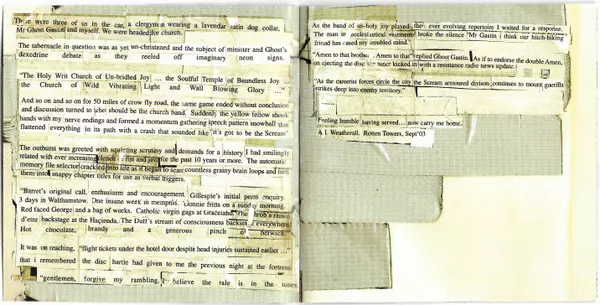 There were three of us in the car, a clergyman wearing a lavendar satin dog collar,
Mr Ghost Gastin and myself. We were headed for church.
The tabernacle in question was as yet un-christened and the subject of minister and Ghost's
dexedrine debate as they reeled off imaginary neon signs.
"The Holy Writ Church of Un-bridled Joy ... the Soulful Temple of Boundless Joy ...
the Church of Wild Vibrating Light and Wall Blowing Glory ..."
And so on and so on for 50 miles of crow fly road, the same game ended without conclusion
and discussion turned to who should be the church band. Suddenly the yellow fellow shook
hands with my nerve endings and formed a momentum gathering speech pattern snowball that
flattened everything in its path with a crash that sounded like 'it's got to be the Scream
The outburst was greeted with squinting scrutiny and demands for a history I had smilingly
related with ever increasing fist and jaw for the past 10 years or more. The automatic
memory file selector crackled into life as it began to scan countless grainy brain loops and turn
them into snappy chapter titles for use as verbal triggers.
"Barret's original call, enthusiasm and encouragement. Gillespie's initial perm enquiry.
3 days in Walthamstow. One insane week in memphis. Connie fritts on a sunday morning.
Red faced George and a bag of works. Catholic virgin gags at Graceland. The throb's raison
d'etre backstage at the Haçienda. The Duff's stream of consciousness backseat everywhere
Hot chocolate, brandy and a generous pinch of berwick.
It was on reaching, "flight tickets under the hotel door despite head injuries sustained earlier ..."
that i remembered the disc hartie had given to me the previous night at the fortress.
"gentlemen, forgive my rambling, I believe the tale is in the tunes
As the band of un-holy joy played their ever evolving repertoire I waited for a response.
The man in ecclesiastical vestments broke the silence "Mr Gastin i think our hitch-hiking
friend has eased my troubled mind."
"Amen to that brother... Amen to that" replied Ghost Gastin. As if to endorse the double Amen,
on ejecting the disc the tuner kicked in with a resistance radio news update :
"As the careerist forces circle the city the Scream armoured division continues to mount guerilla
strikes deep into enemy territory."
Feeling humble having served... now carry me home.
A. J. Weatherall. Rotten Towers, Sept'03